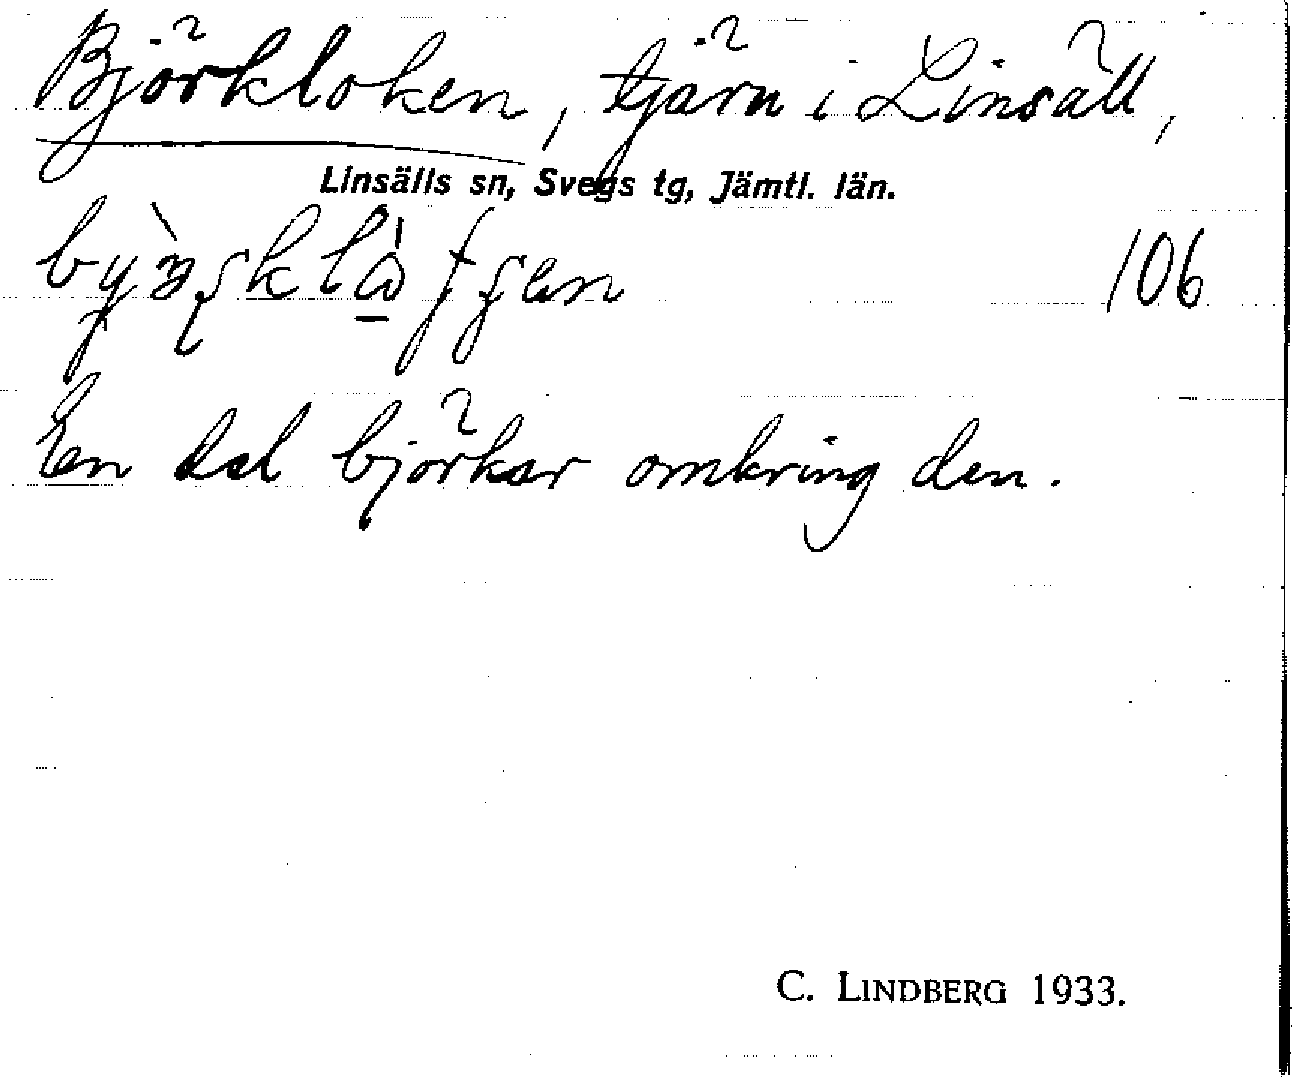 Björkloken, tjärn i Linsäll,
Linsälls sn, Svegs tg, Jämtl. län.
106
En del björkar omkring den.
C. LINDBERG 1933.